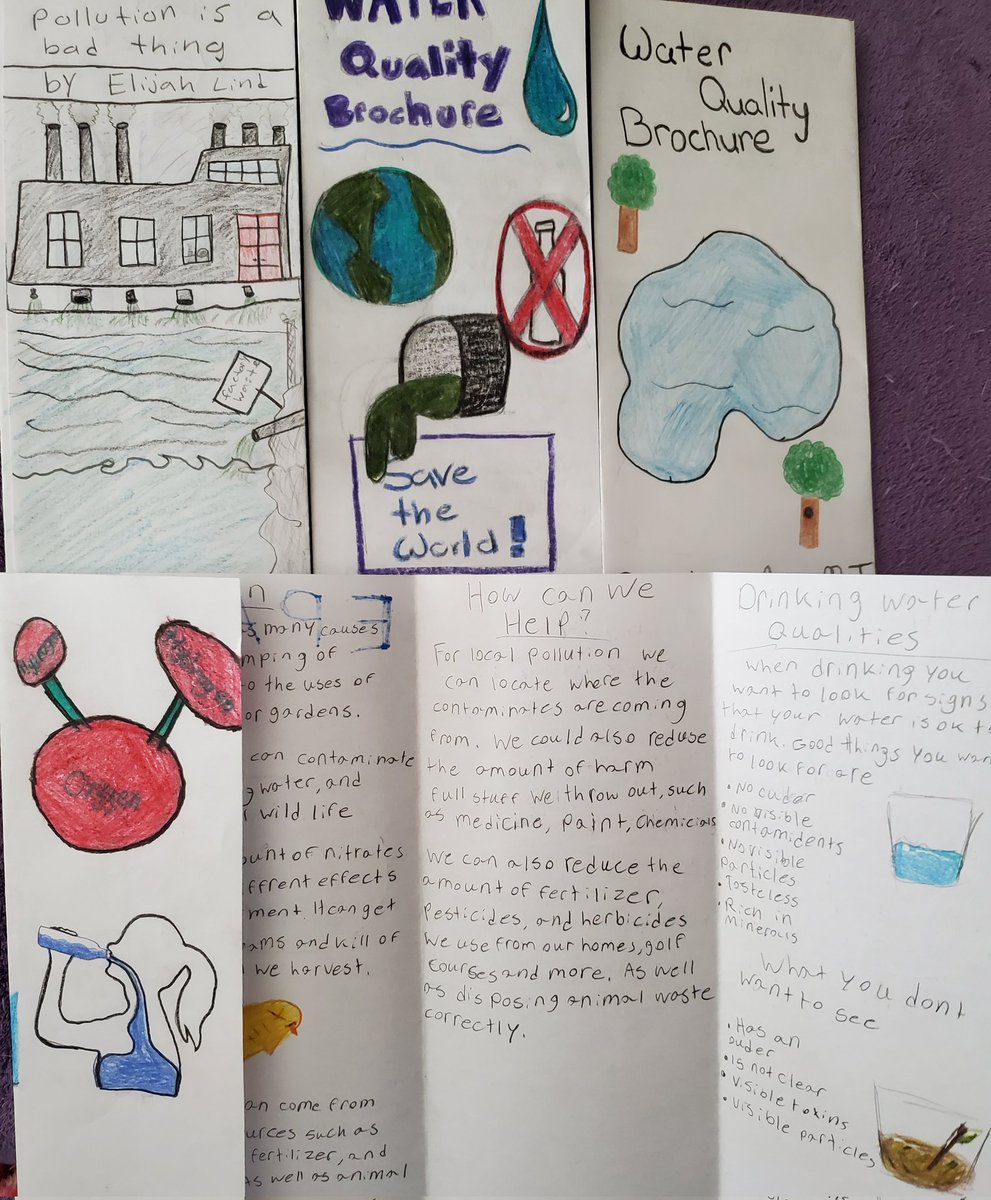 Pollution is a
bad thing
by Elijah Lind
factory
waste
WATER
Quality
Brochure
Save
the
World!
Water
Quality
Brochure
Hydrogen
Oxygen
many causes
mping of
o the uses of
or gardens.
can contaminate
g water, and
wild life
ount of nitrates
ffrent effects
ment. It can get
ams and kill of
we harvest.
an come from
urces such as
fertilizer, and
As well as animal
How can we
Help?
For local pollution we
can locate where the
contaminates are coming
from. We could also reduse
the amount of harm
full stuff we throw out, such
as medicine, paint, chemicials
We can also reduce the
amount of fertilizer,
Pesticides, and herbicides
we use from our homes, golf
courses and more. As well
as disposing animal waste
correctly.
Drinking water
Qualities
when drinking you
want to look for signs
that your water is ok to
drink. Good things you wan
to look for are
• No ouder
• No visible
contamidents
• No visible
particles
• Tasteless
• Rich in
minerals
What you dont
want to see
• Has an
ouder
• is not clear
• visible toxins
• visible particles